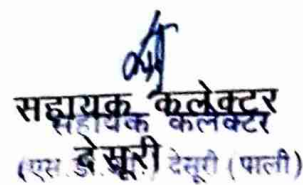 सहायक कलेक्टर
सहायक कलेक्टर
देसूरी
(एस. देसूरी (पाली)